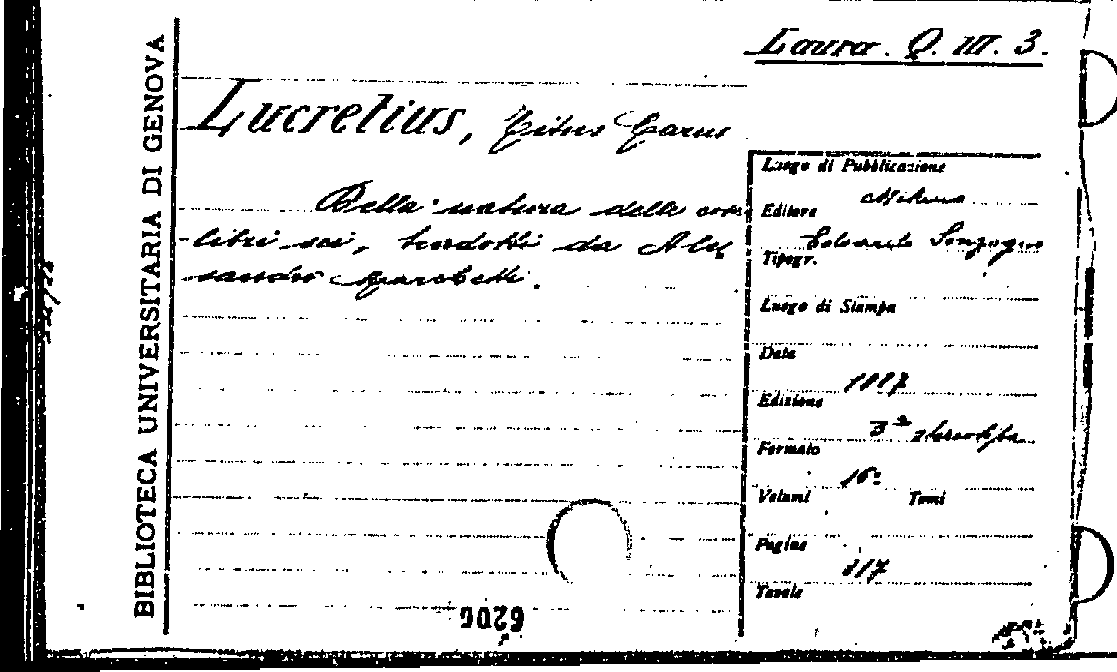 Laura. Q. III. 3.
BIBLIOTECA UNIVERSITARIA DI GENOVA
Lucretius, Titus Carus
Della natura delle cose
libri sei, tradotti da Ales
sandro Marchetti.
Luogo di Pubblicazione
Milano
Editore
Edoardo Sonzogno
Tipogr.
Luogo di Stampa
Data
Edizione
3ª stereotipa
Formato
16°
Volumi Tomi
Pagine
Tavole
6206